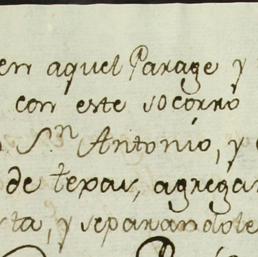 en aquel Parage y
con este socorro
S.n Antonio, y
de texas, agregan
ta, y separandole